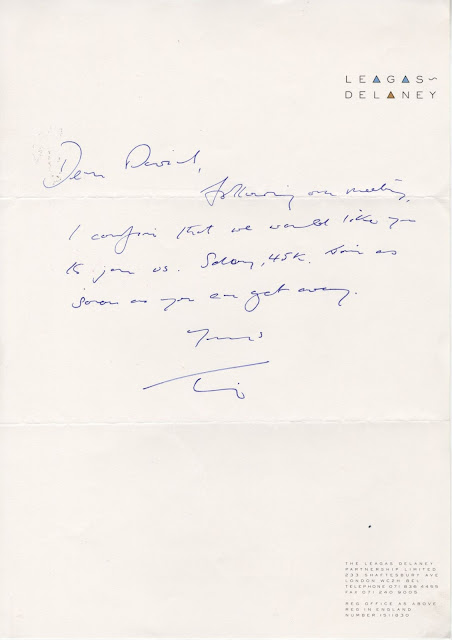 LEAGAS~
DELANEY
Dear David,
following our meeting,
I confirm that we would like you
to join us. Salary, 45K. Join as
soon as you can get away.
Yours
Tim
THE LEAGAS DELANEY
PARTNERSHIP LIMITED
233 SHAFTESBURY AVE
LONDON WC2H 8EL
TELEPHONE 071 836 4455
FAX 071 240 9005
REG OFFICE AS ABOVE
REG IN ENGLAND
NUMBER 1511830